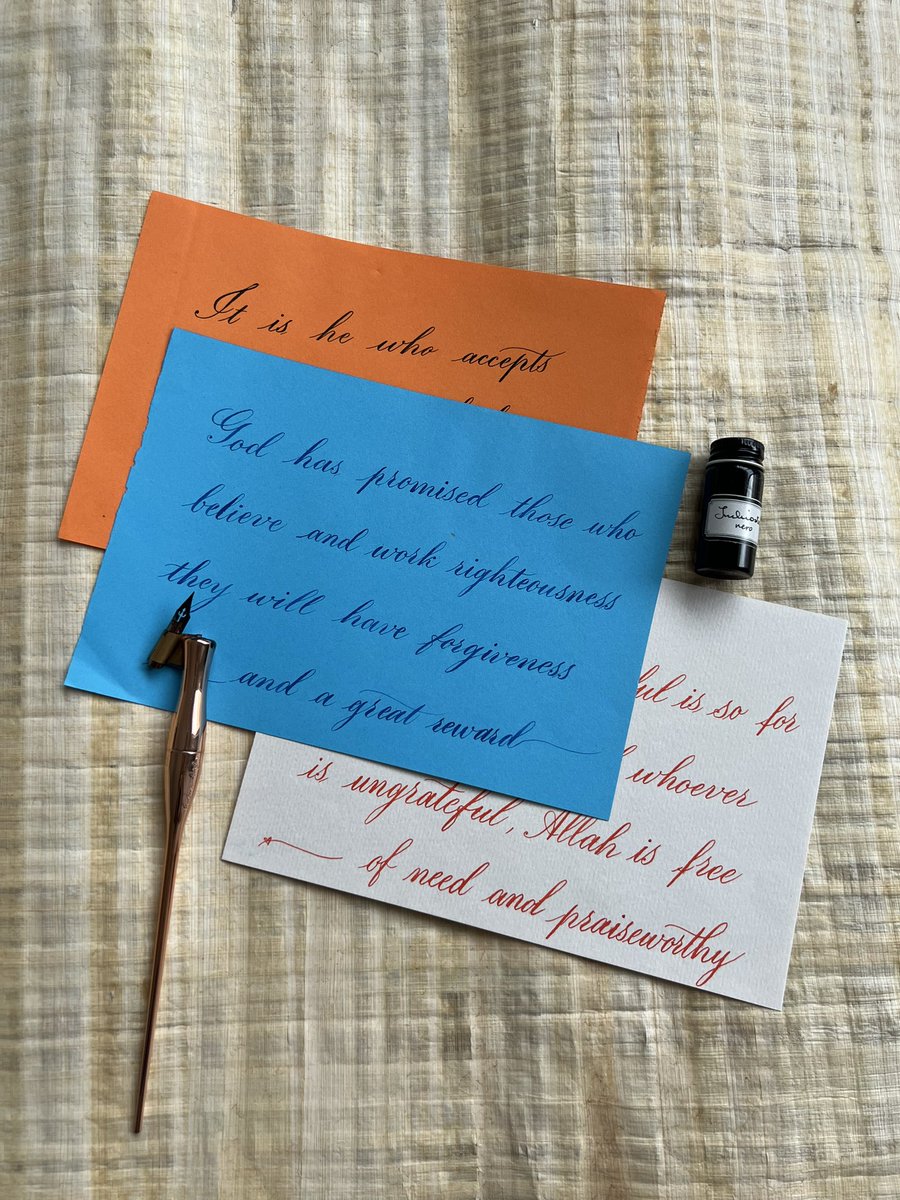 It is he who accepts
God has promised those who
believe and work righteousness
they will have forgiveness
and a great reward
is so for
whoever
is ungrateful, Allah is free
of need and praiseworthy
nero